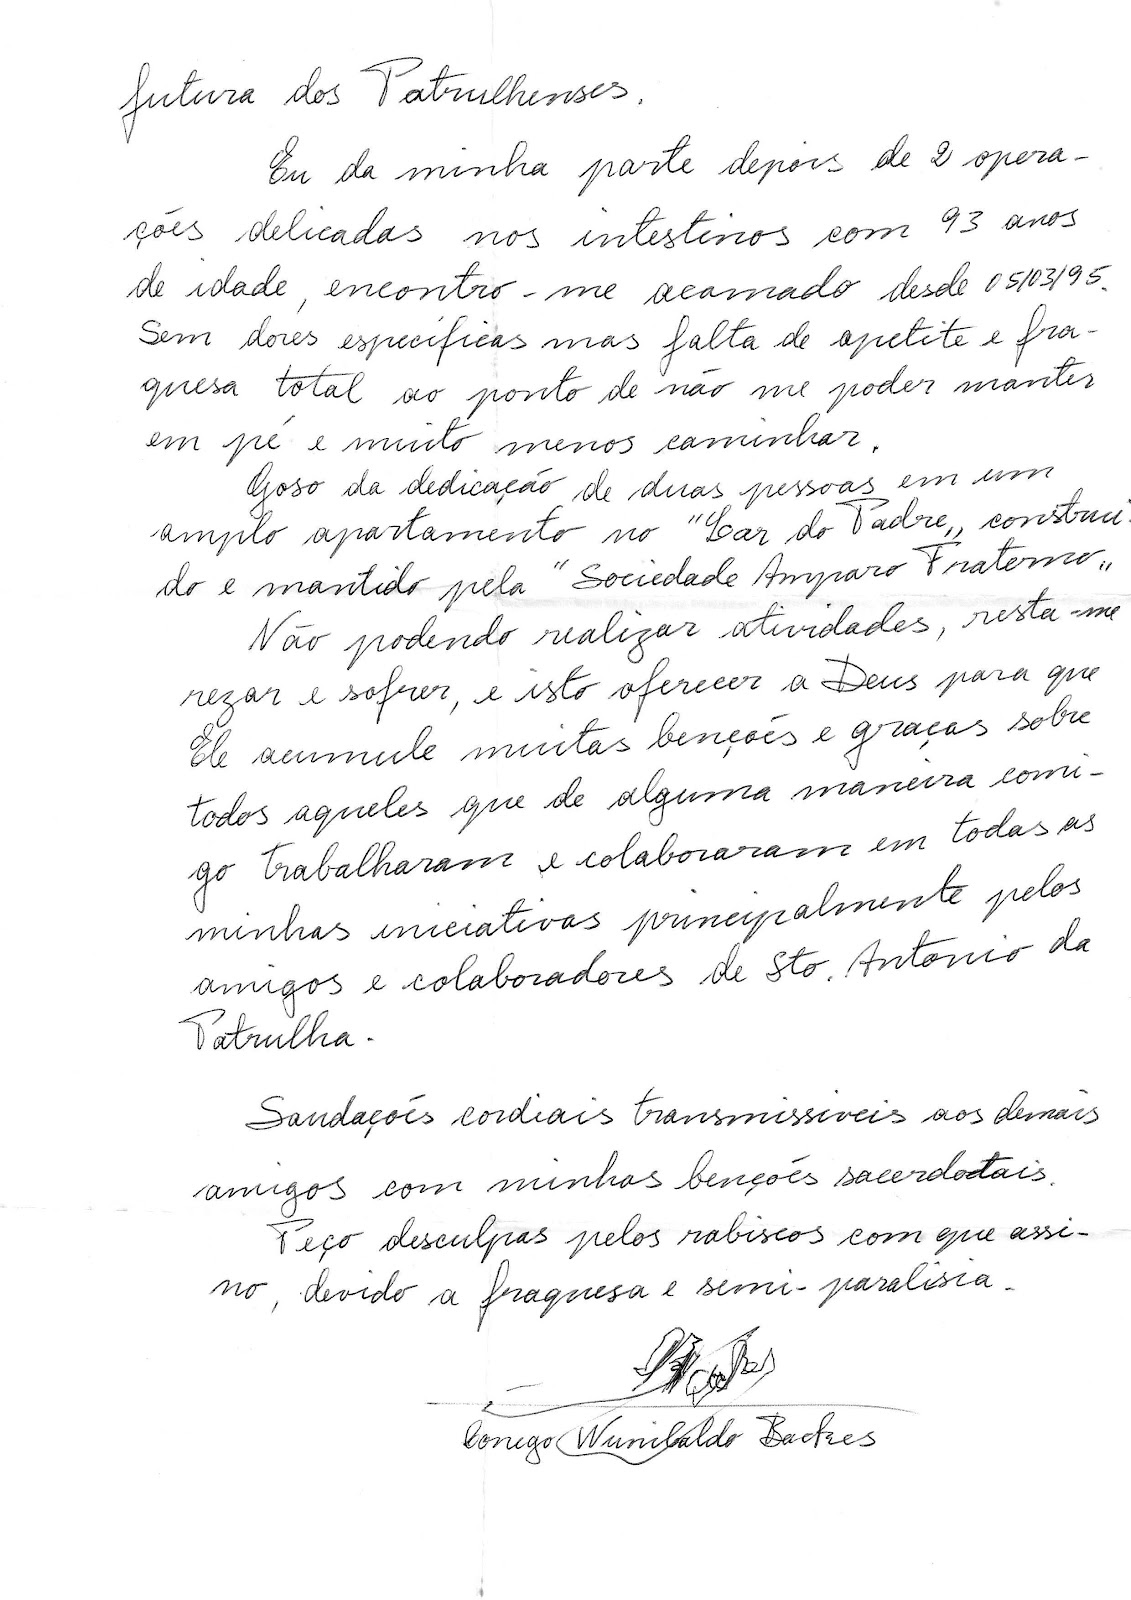 futura dos Patrulhenses.
Eu da minha parte depois de 2 opera-
ções delicadas nos intestinos com 93 anos
de idade, encontro-me acamado desde 05/03/95.
Sem dores específicas mas falta de apetite e fra-
quesa total ao ponto de não me poder manter
em pé e muito menos caminhar.
Goso da dedicação de duas pessoas em um
amplo apartamento no "Lar do Padre„ construi-
do e mantido pela "Sociedade Amparo Fraterno„
Não podendo realizar atividades, resta-me
rezar e sofrer, e isto oferecer a Deus para que
Ele acumule muitas benções e graças sobre
todos aqueles que de alguma maneira comi-
go trabalharam e colaboraram em todas as
minhas iniciativas principalmente pelos
amigos e colaboradores de Sto. Antonio da
Patrulha.
Saudações cordiais transmissiveis aos demais
amigos com minhas benções sacerdotais.
Peço desculpas pelos rabiscos com que assi-
no, devido a fraquesa e semi-paralisia.
Conego Wunibaldo Backes